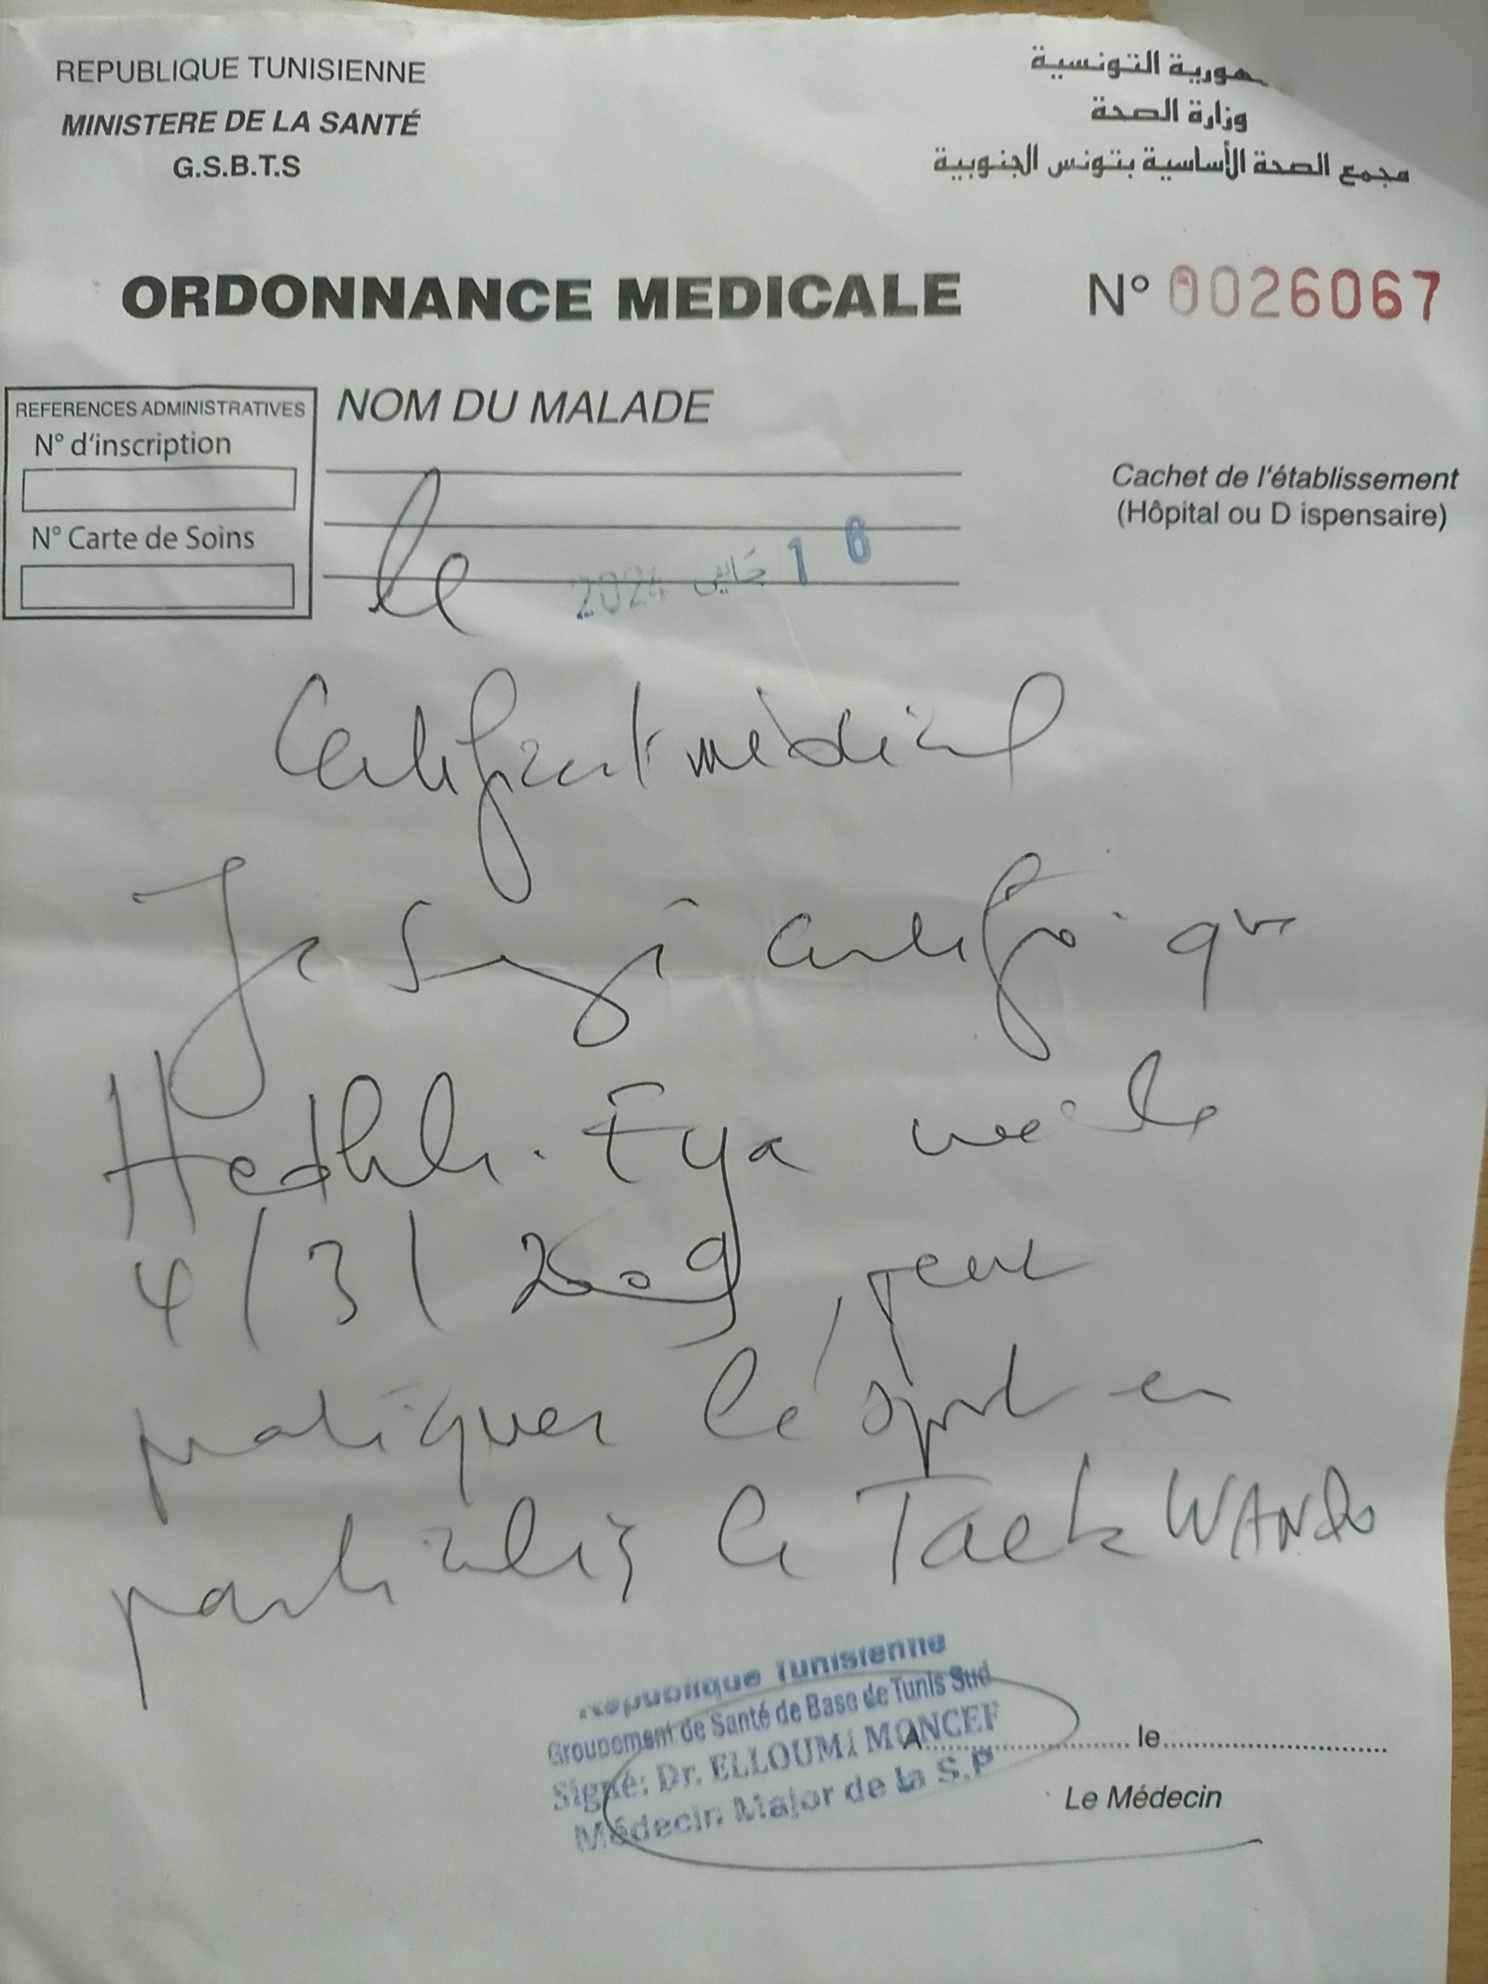 REPUBLIQUE TUNISIENNE
MINISTERE DE LA SANTÉ
G.S.B.T.S
هورية التونسية
وزارة الصحة
مجمع الصحة الأساسية بتونس الجنوبية
ORDONNANCE MEDICALE N° 0026067
REFERENCES ADMINISTRATIVES
N° d'inscription
N° Carte de Soins
NOM DU MALADE
Cachet de l'établissement
(Hôpital ou D ispensaire)
le 16 2024
Certificat médical
Je certifie que
Hedhli Eya née le
4/3/2009, peut
pratiquer le sport en
particulier le TaekWANdo
République Tunisienne
Groupement de Santé de Base de Tunis Sud
Signé: Dr. ELLOUMI MONCEF
Médecin Major de la S.P
A.............................. le..............................
Le Médecin